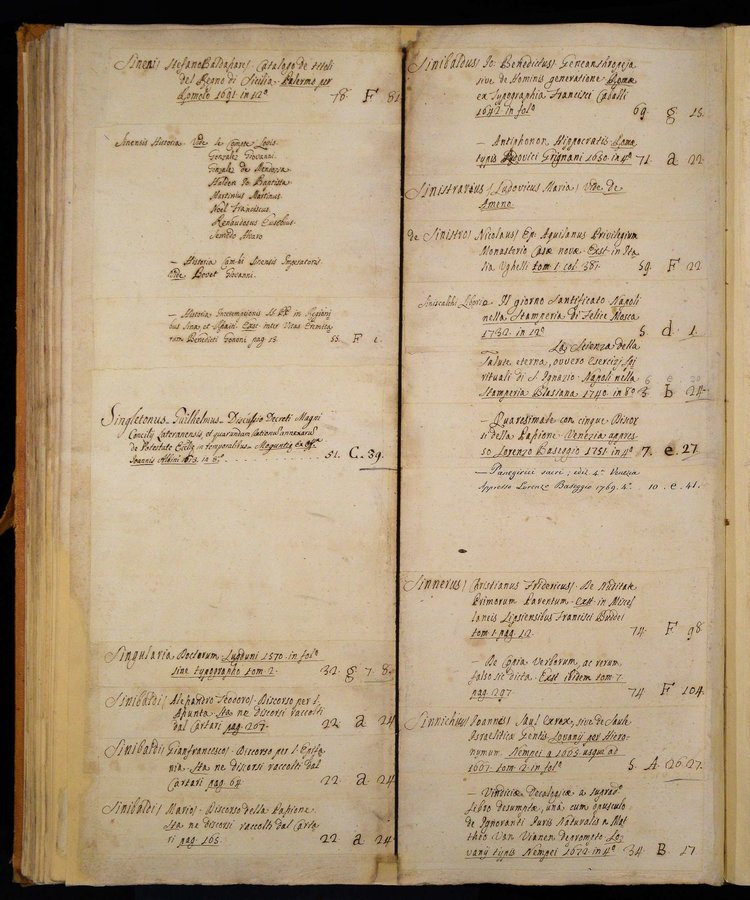 Sineri/ Stefano Baldassare/ Catalogo de titoli
del Regno di Sicilia. Palermo per
Romolo 1692 in 12º 76. F 81
Sinensis Historia. Vide le Comte Louis.
Gonzalez Giovanni.
Gonzalez de Mendozza
Halden Jo. Baptista
Martinius Martinus.
Noel Franciscus.
Renaudosus Eusebius
Semedo Alvaro
— Historia Cambi Sinensis Imperatoris.
Vide Bovet Giovanni.
— Historia Incarnationis in Regioni
bus Sina, et Spain. Exst. inter Vitas Eremita
rum Benedicti Gononi pag 13. 55. F 1.
Singletonus Guilhelmus. Discussio Decreti Magni
Concilij Lateranensis, et quarundam rationum annexarum
de Potestate Ecclae in temporalibus. Moguntiæ ex Offª
Joannis Albini 1613. in 8º. 51. C. 39.
Singularia Doctorum. Lugduni 1570. in folº
sine typographo tom. 2. 32. g 7. 8.
Sinibaldi/ Alejandro Teodoro/. Discorso per l'
Sta ne discorsi raccolti
dal Cartari pag. 267. 22. a 24
Sinibaldi/ Gianfrancesco/. Discorso per l'Epifa
nia. Sta ne discorsi raccolti dal
Cartari pag. 64. 22. a 24
Sinibaldi/ Mario/. Discorso della Passione.
Sta ne discorsi raccolti dal Carta
ri pag. 165. 22. a 24
Sinibaldus/ Jo. Benedictus/ Geneanthropeja
sive de Hominis generatione. Romæ
ex Typographia Francisci Caballi
1642. in folº 69. g 15.
— Antiphonon Hippocratis. Romæ
typis Ludovici Grignani 1650. in 4º 71. a 22.
Sinistrarius/ Ludovicus Maria/ Vide de
Ameno.
de Sinistro/ Nicolaus/ Ep. Aquilanus Privilegium
Monasterio Casæ novæ. Exst. in Ita
lia Ughelli tom. 1. col. 387. 59. F 22.
Siniscalchi Liborio. Il giorno santificato. Napoli
nella Stamperia di Felice Mosca
1732. in 12º 5. d. 1.
La Scienza della
salute eterna, ovvero Esercizj spi
rituali di S. Ignazio. Napoli nella
Stamperia Blasiana 1740. in 8º 3 b 24
— Quaresimale con cinque Discor
si della Passione. Venezia appres
so Lorenzo Baseggio 1751. in 4º 7. e. 27.
— Panegirici sacri; ediz. 4ª Venezia
Appresso Lorenzo Baseggio 1769. 4º. 10. e. 41.
Sinnerus/ Christianus Fridericus/. De Nuditate
Primorum Parentum. Exst. in Miscel
laneis Lipsiensibus Francisci Buddei
tom. 1. pag. 12. 74. F 98.
— De Copia Verborum, ac rerum
falso sic dicta. Exst. ibidem tom. 7.
pag. 297. 74 F 104.
Sinnichius/ Joannes/ Saul Exrex, sive de Saule
Israelitica Gentis. Lovanij per Hiero-
numum Nempei a 1665. usque ad
1667. tom. 2. in folº 5 A 26. 27.
— Vindiciæ Decalogicæ a suprado
libro desumptæ, una cum opusculo
de Ignorantia Juris Naturalis a Mat
theo Van Vianen deprompto. Lo
vanij typis Nempei 1672. in 4º 34. B. 17